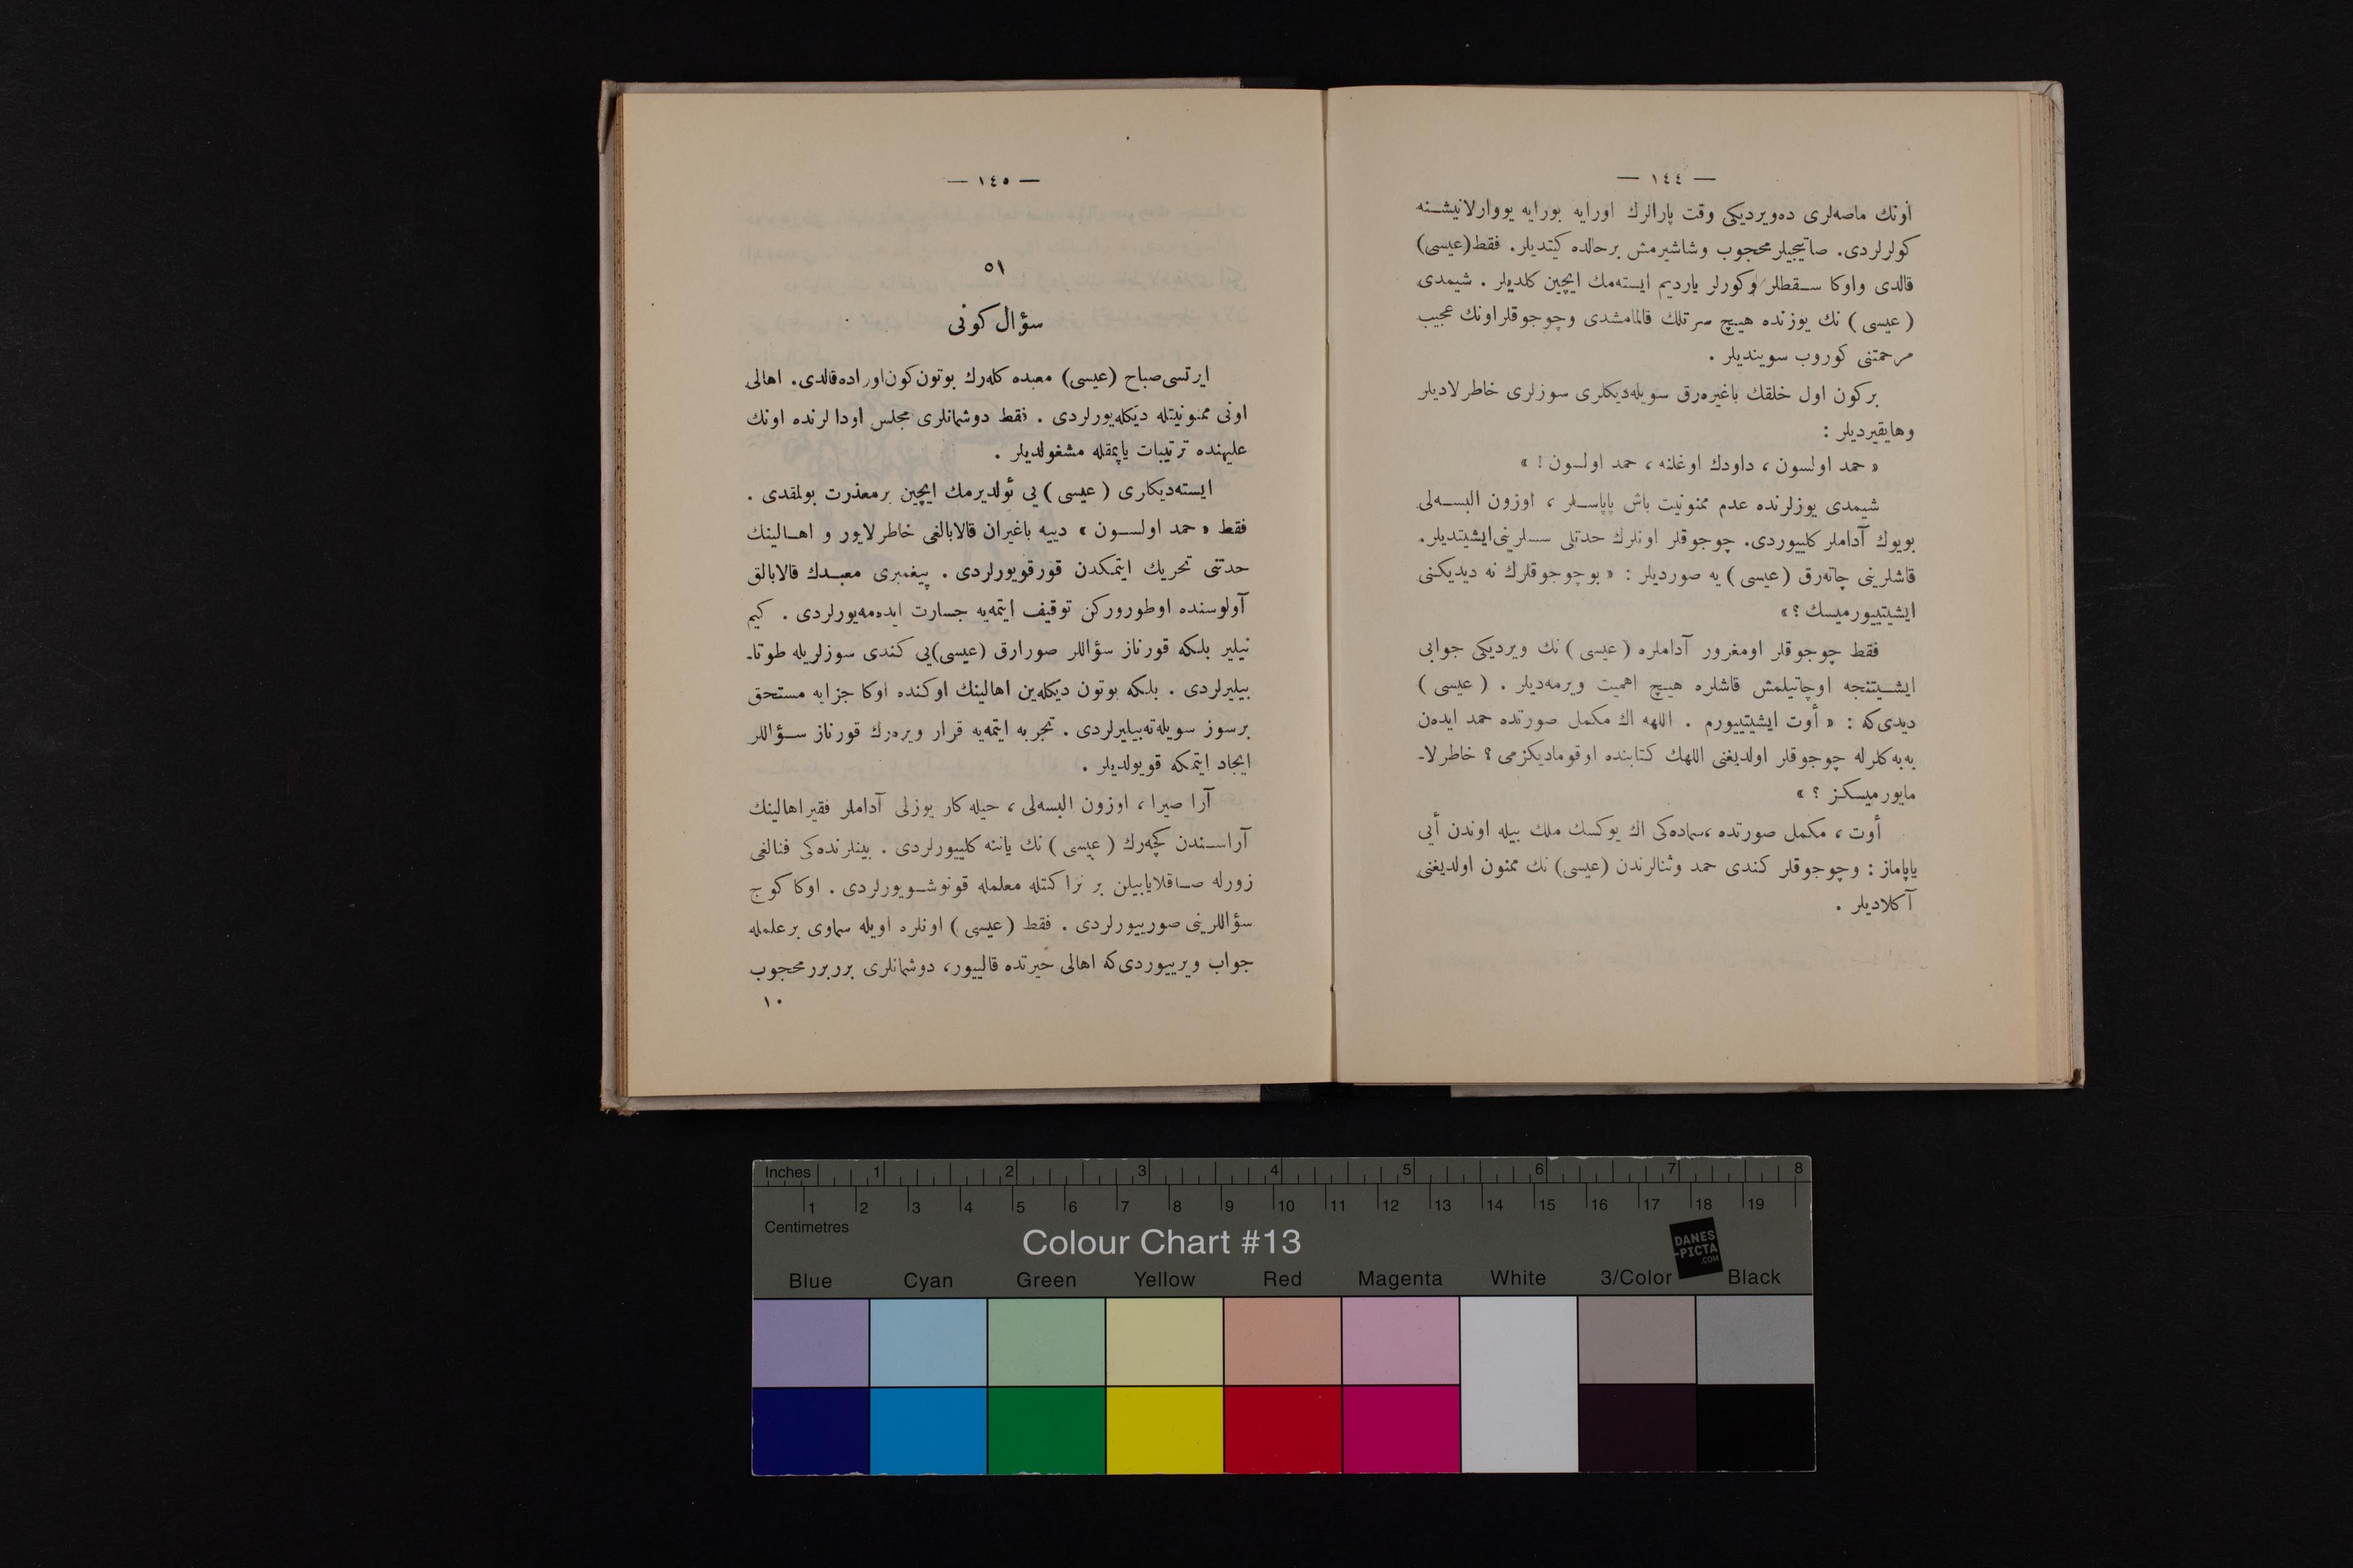 — ١٤٤ —
أونك ماصه‌لری ده‌ویردیكی وقت پارالرك اورایه بورایه یووارلانیشـنه
كولرلردی. صاتیجیلر محجوب وشاشیرمش برحالده كیتدیلر. فقط (عیسی)
قالدی واوكا سـقطلر وكورلر یاردیم ایسته‌مك ایچین كلدیلر . شیمدی
(عیسی) نك یوزنده هیچ سرتلك قالمامشدی وچوجوقلر اونك عجیب
مرحمتنی كوروب سویندیلر .
بركون اول خلقك باغیره‌رق سویله‌دیكلری سوزلری خاطرلادیلر
وهایقیردیلر :
« حمد اولسون ، داودك اوغلنه ، حمد اولسون ! »
شیمدی یوزلرنده عدم ممنونیت باش پاپاسـلر ، اوزون البسـه‌لی
بویوك آداملر كلییوردی. چوجوقلر اونلرك حدتلی سسلرینی ایشیتدیلر.
قاشلرینی چاته‌رق (عیسی) یه صوردیلر : « بوچوجوقلرك نه دیدیكنی
ایشیتییورمیسك ؟ »
فقط چوجوقلر اومغرور آداملره (عیسی) نك ویردیكی جوابی
ایشـیتنجه اوچاتیلمش قاشلره هیچ اهمیت ویرمه‌دیلر . (عیسی)
دیدی‌كه : « أوت ایشیتییورم . اللهه اك مكمل صورتده حمد ایده‌ن
به‌به‌كلرله چوجوقلر اولدیغنی اللهك كتابنده اوقومادیكزمی ؟ خاطرلا-
مایورمیسكز ؟ »
أوت ، مكمل صورتده ،سماده‌كی اك یوكسك ملك بیله اوندن أیی
یاپاماز : وچوجوقلر كندی حمد وثنالرندن (عیسی) نك ممنون اولدیغنی
آكلادیلر .
— ١٤٥ —
٥١
سؤال كونی
ایرتسی صباح (عیسی) معبده كله‌رك بوتون كون اوراده قالدی. اهالی
اونی ممنونیتله دیكله‌یورلردی . فقط دوشمانلری مجلس اودالرنده اونك
علیهنده ترتیبات یاپمقله مشغولدیلر .
ایسته‌دیكلری (عیسی) یی ئولدیرمك ایچین برمعذرت بولمقدی .
فقط « حمد اولسـون » دییه باغیران قالابالغی خاطرلایور و اهـالینك
حدتنی تحریك ایتمكدن قورقویورلردی . پیغمبری معبـدك قالابالق
آولوسنده اوطوروركن توقیف ایتمه‌یه جسارت ایده‌مه‌یورلردی . كیم
نیلیر بلكه قورناز سؤاللر صورارق (عیسی)یی كندی سوزلریله طوتا-
بیلیرلردی . بلكه بوتون دیكله‌ین اهالینك اوكنده اوكا جزایه مستحق
برسوز سویله‌ته‌بیلیرلردی . تجربه ایتمه‌یه قرار ویره‌رك قورناز سـؤاللر
ایجاد ایتمكه قویولدیلر .
آرا صیرا ، اوزون البسه‌لی ، حیله‌كار یوزلی آداملر فقیر اهالینك
آراسـندن كچه‌رك (عیسی) نك یاننه كلییورلردی . بینلرنده‌كی فنالغی
زورله صـاقلایابیلن بر نزاكتله معلمله قونوشـویورلردی . اوكا كوج
سؤاللرینی صورییورلردی . فقط (عیسی) اونلره اویله سماوی برعلمله
جواب ویرییوردی‌كه اهالی حیرتده قالییور، دوشمانلری برربرر محجوب
١٠
Inches 1 2 3 4 5 6 7 8
1 2 3 4 5 6 7 8 9 10 11 12 13 14 15 16 17 18 19
Centimetres
Colour Chart #13
DANES
-PICTA
.COM
Blue Cyan Green Yellow Red Magenta White 3/Color Black